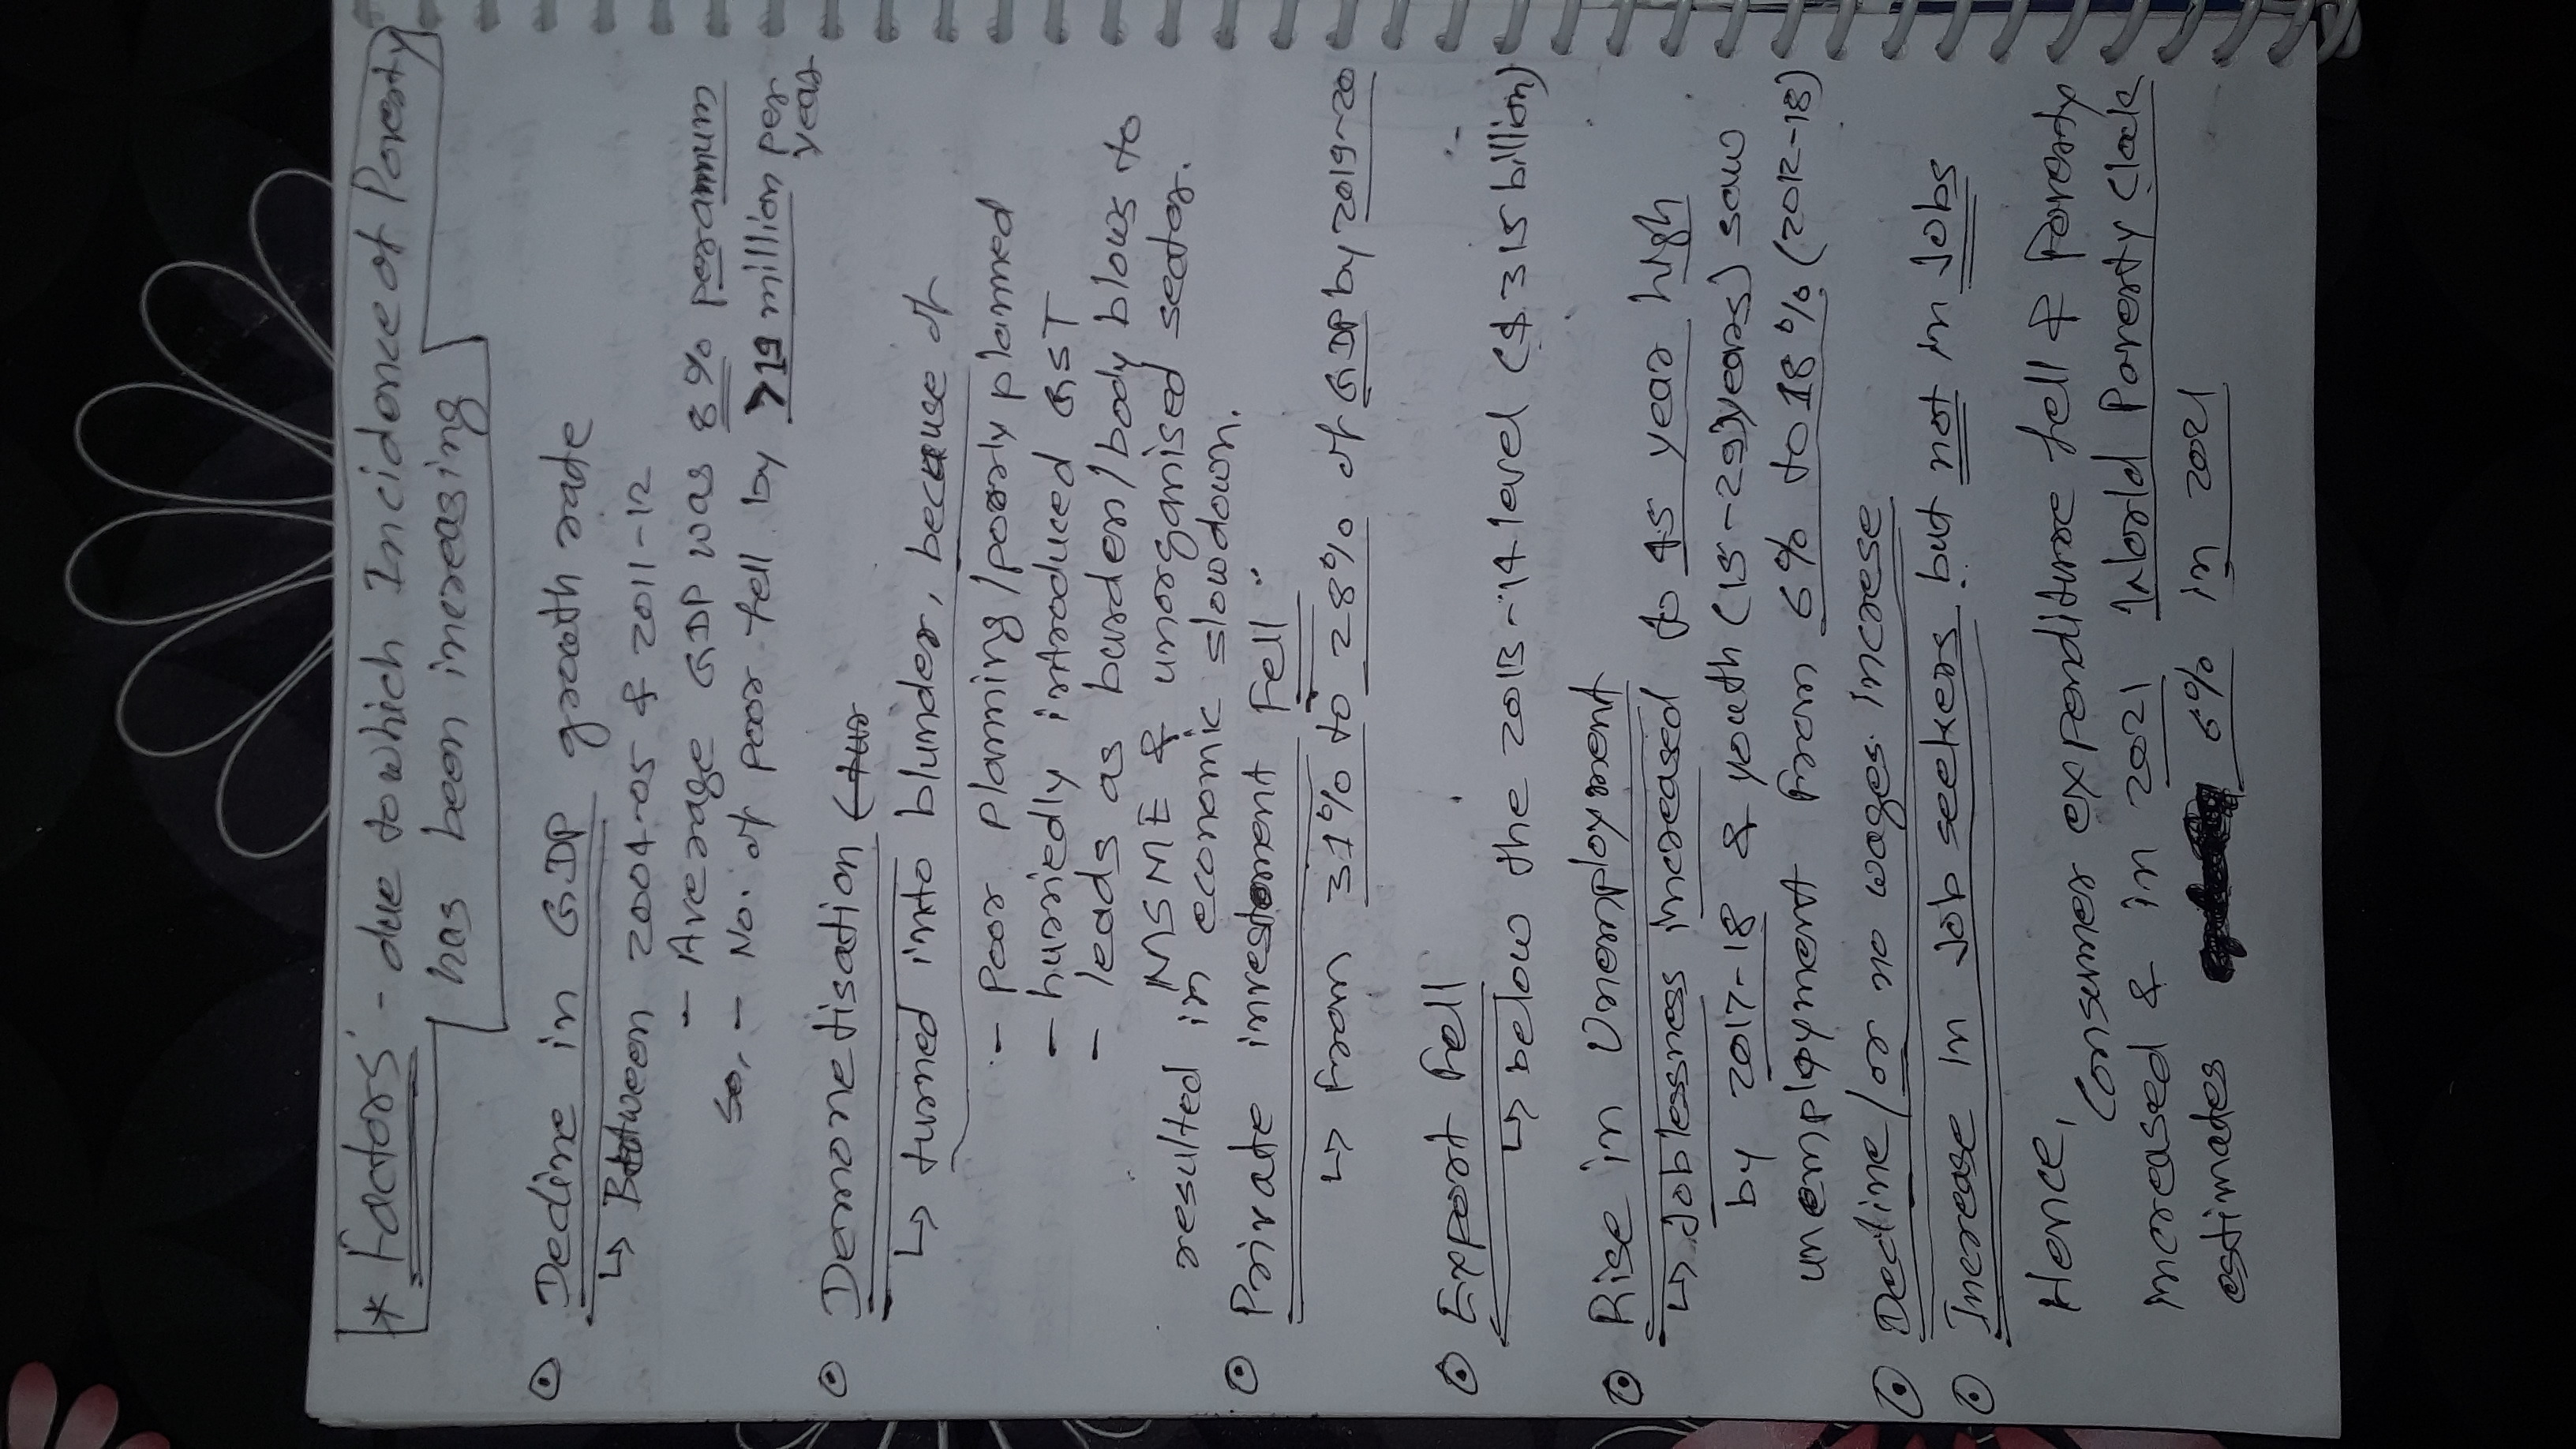 * Factors - due to which Incidence of Poverty
has been increasing
⊙ Decline in GDP growth rate
↳ Between 2004-05 & 2011-12
- Average GDP was 8% per annum
So, - No. of poor fell by >19 million per
year
⊙ Demonetisation
↳ turned into blunder, because of
- Poor planning/poorly planned
- hurriedly introduced GST
- leads as burden/body blows to
MSME & unorganised sector.
resulted in economic slowdown.
⊙ Private investment Fell :
↳ From 31% to 28% of GDP by 2019-20
⊙ Export Fell
↳ below the 2013-14 level ($315 billion)
⊙ Rise in Unemployment
↳ Joblessness increased to 45 year high
by 2017-18 & youth (15-29)years) saw
unemployment from 6% to 18% (2012-18)
⊙ Decline/or no wages increase
⊙ Increase in Job seekers but not in Jobs
Hence, Consumer expenditure fell & Poverty
increased & in 2021 World Poverty Clock
estimates 6% in 2021